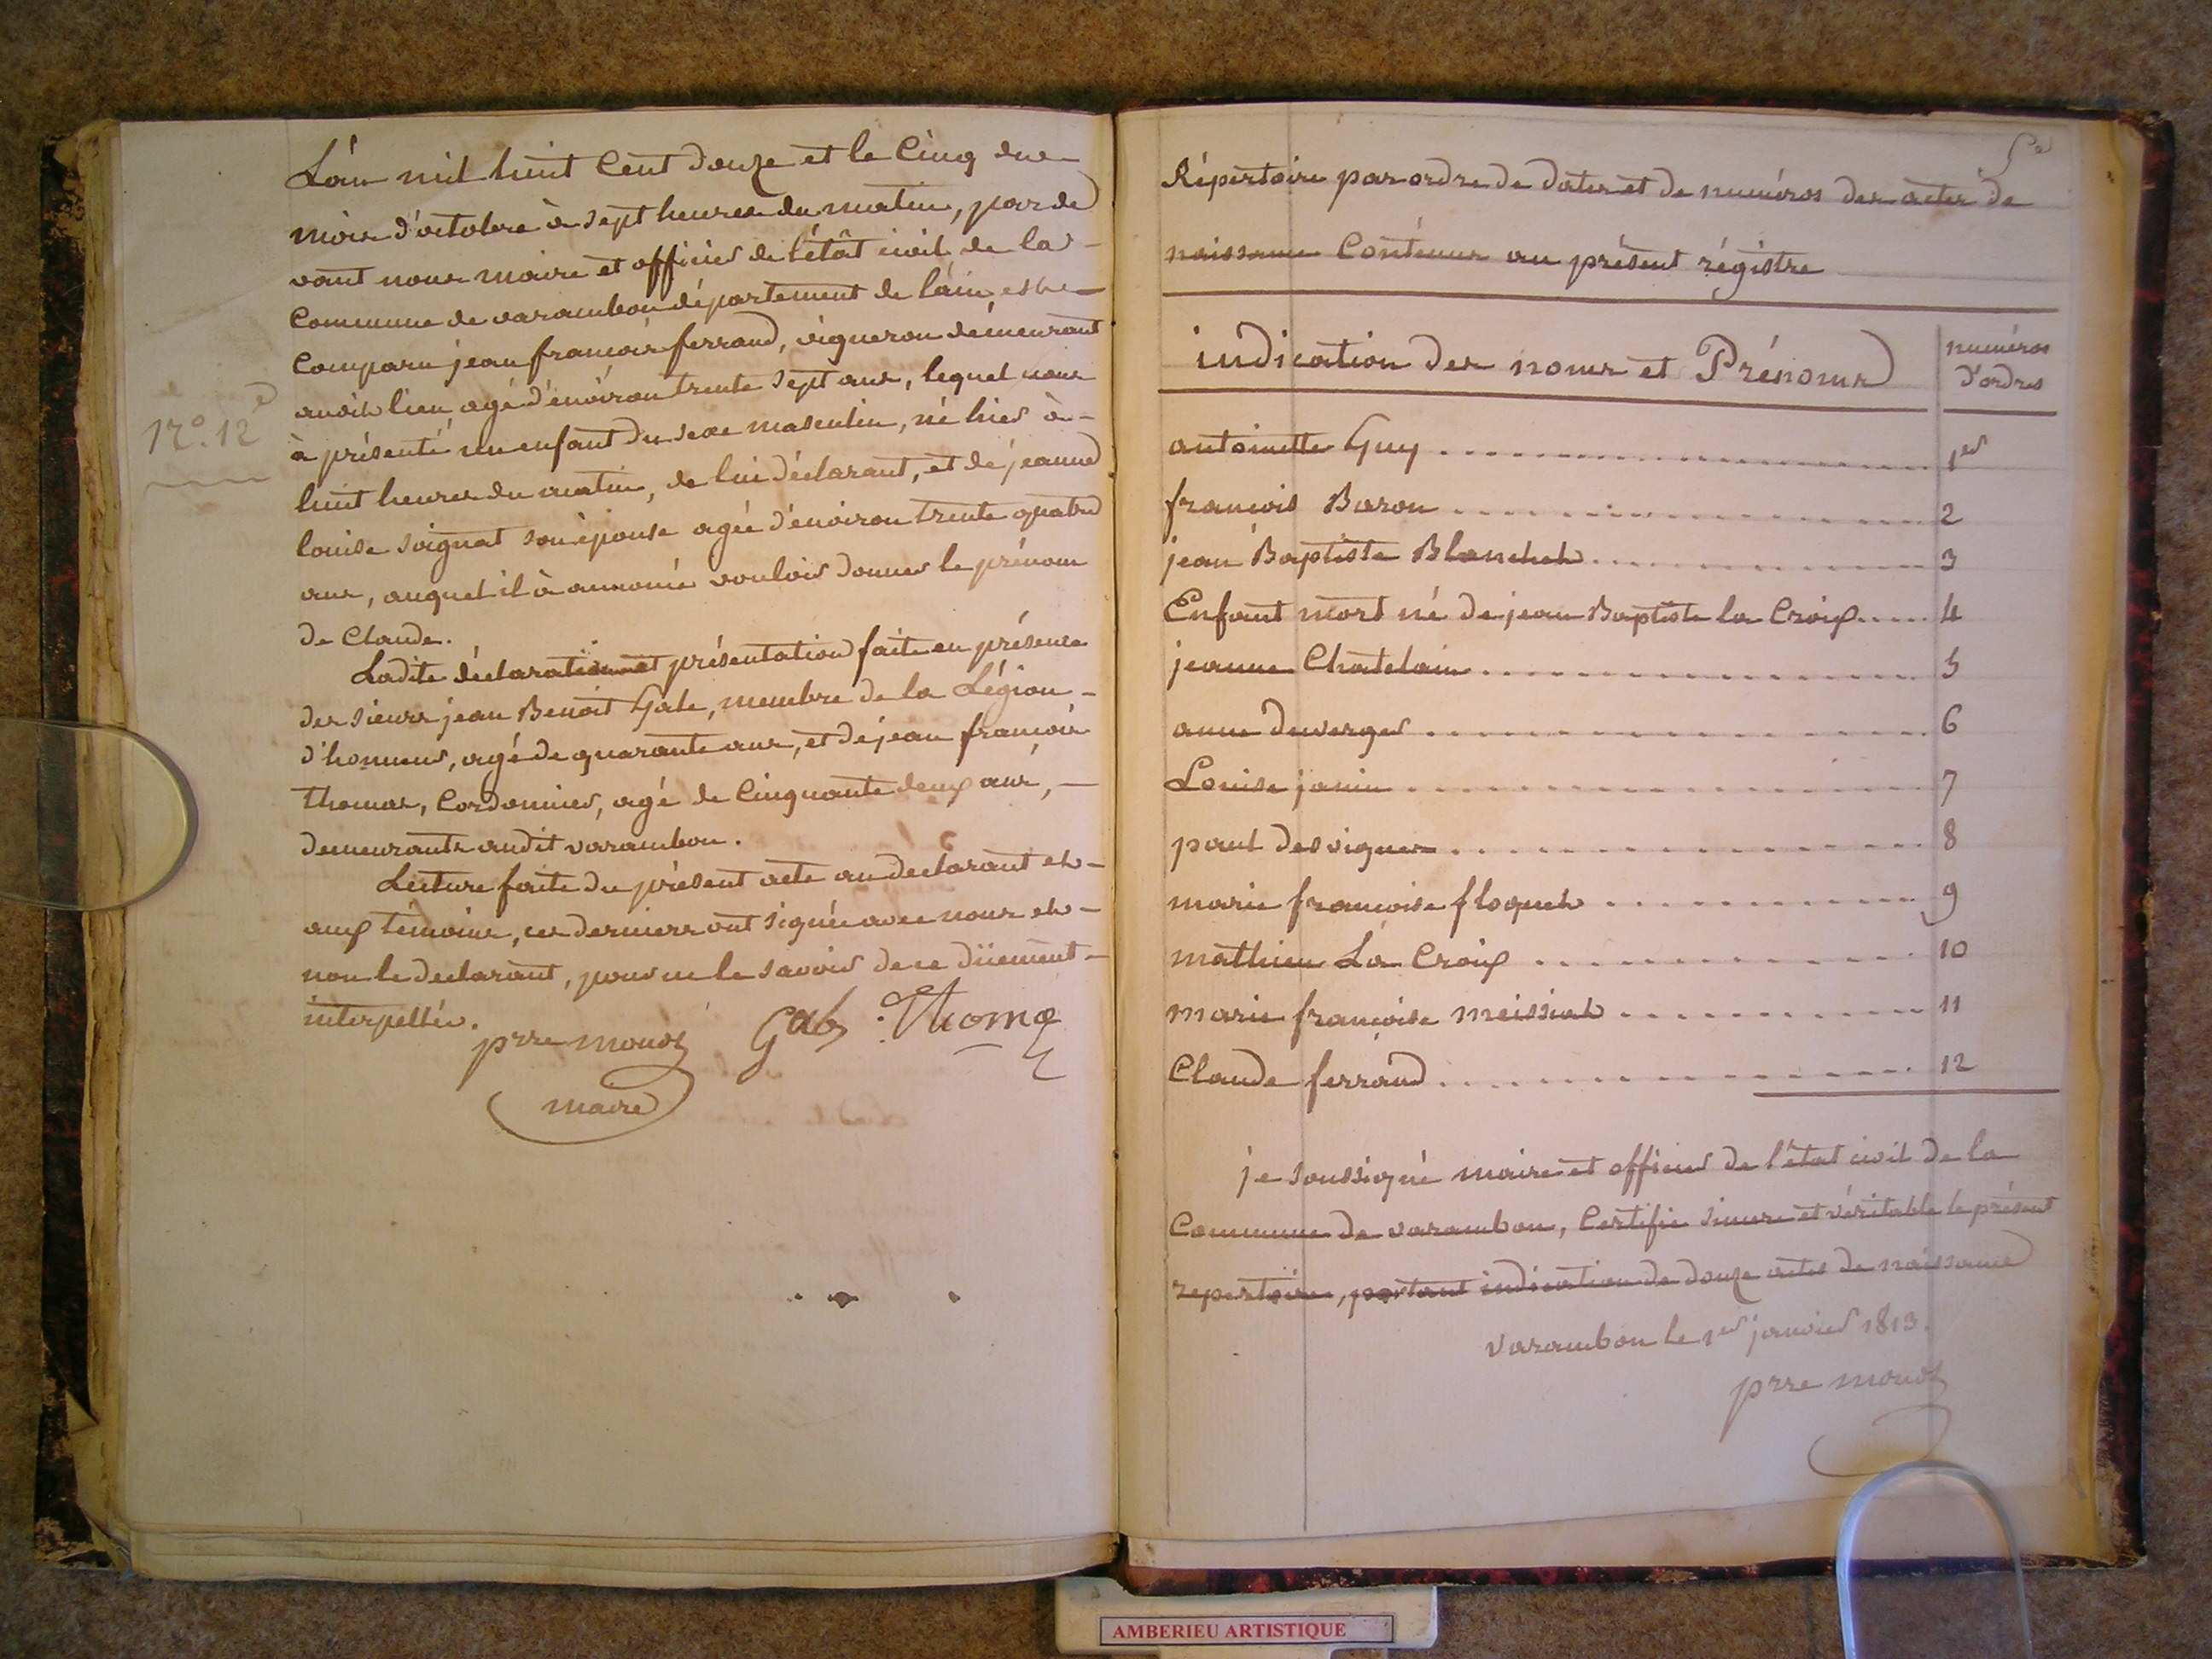 L'an mil huit Cent douze et le Cinq du
mois d'octobre à sept heures du matin, par de
vant nous maire et officier de l'état civil de la
Commune de varambon département de l'ain, est
Comparu jean françois ferrand, vigneron démeurant
audit lieu agé d'environ trente sept ans, lequel nous
à présenté un enfant du sexe masculin, né hier à
N.º 12e
huit heures du matin, de lui déclarant, et de jeanne
louise soignat son épouse agée d'environ trente quatre
ans, auquel il à annoncé vouloir donner le prénom
de Claude.
Ladite déclaration et présentation faite en présence
des sieurs jean Benoit Gabe, membre de la Légion
d'honneur, agé de quarante ans, et de jean françois
thomas, Cordonnier, agé de Cinquante deux ans,
demeurants audit varambon.
Lecture faite du présent acte au declarant et
aux témoins, ces derniers ont signée avec nous et
non le declarant, pour ne le savoir de ce düement
interpellés.
prre monoz Gabe Thoma
maire
5e
Répertoire par ordre de dates et de numéros des actes de
naissance Contenus au présent régistre
indication des noms et Prénoms
numéros
d'ordres
antoinette Guy 1er
françois Baron 2
jean Baptiste Blanchet 3
Enfant mort né de jean Baptiste la Croix 4
jeanne Chatelain 5
anne duverger 6
Louise janin 7
paul desvignes 8
marie françoise floquet 9
mathieu La Croix 10
marie françoise meissiat 11
Claude ferrand 12
je soussigné maire et officier de l'état civil de la
Commune de varambon, Certifie sincere et véritable le présent
repertoire, portant indication de douze actes de naissance
varambon le 1er janvier 1813.
prre monoz
AMBERIEU ARTISTIQUE